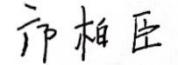 邝柏臣